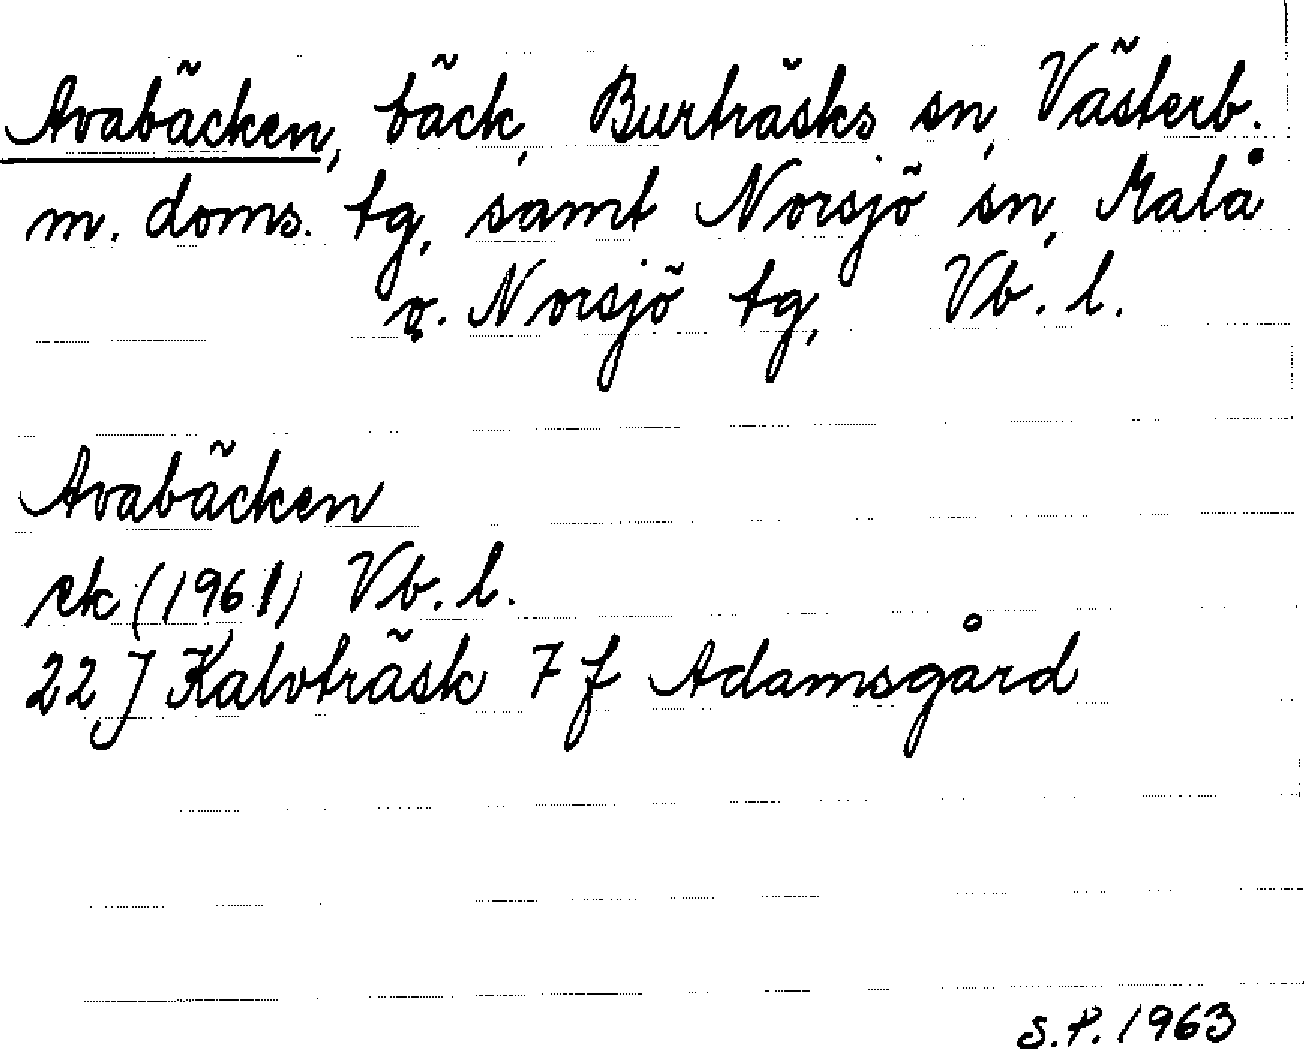 Avabäcken, bäck, Burträsks sn, Västerb.
m. doms. tg, samt Norsjö sn, Malå
o. Norsjö tg, Vb. l.
Avabäcken
ek (1961) Vb. l.
22 J Kalvträsk 7 f Adamsgård
S.P. 1963